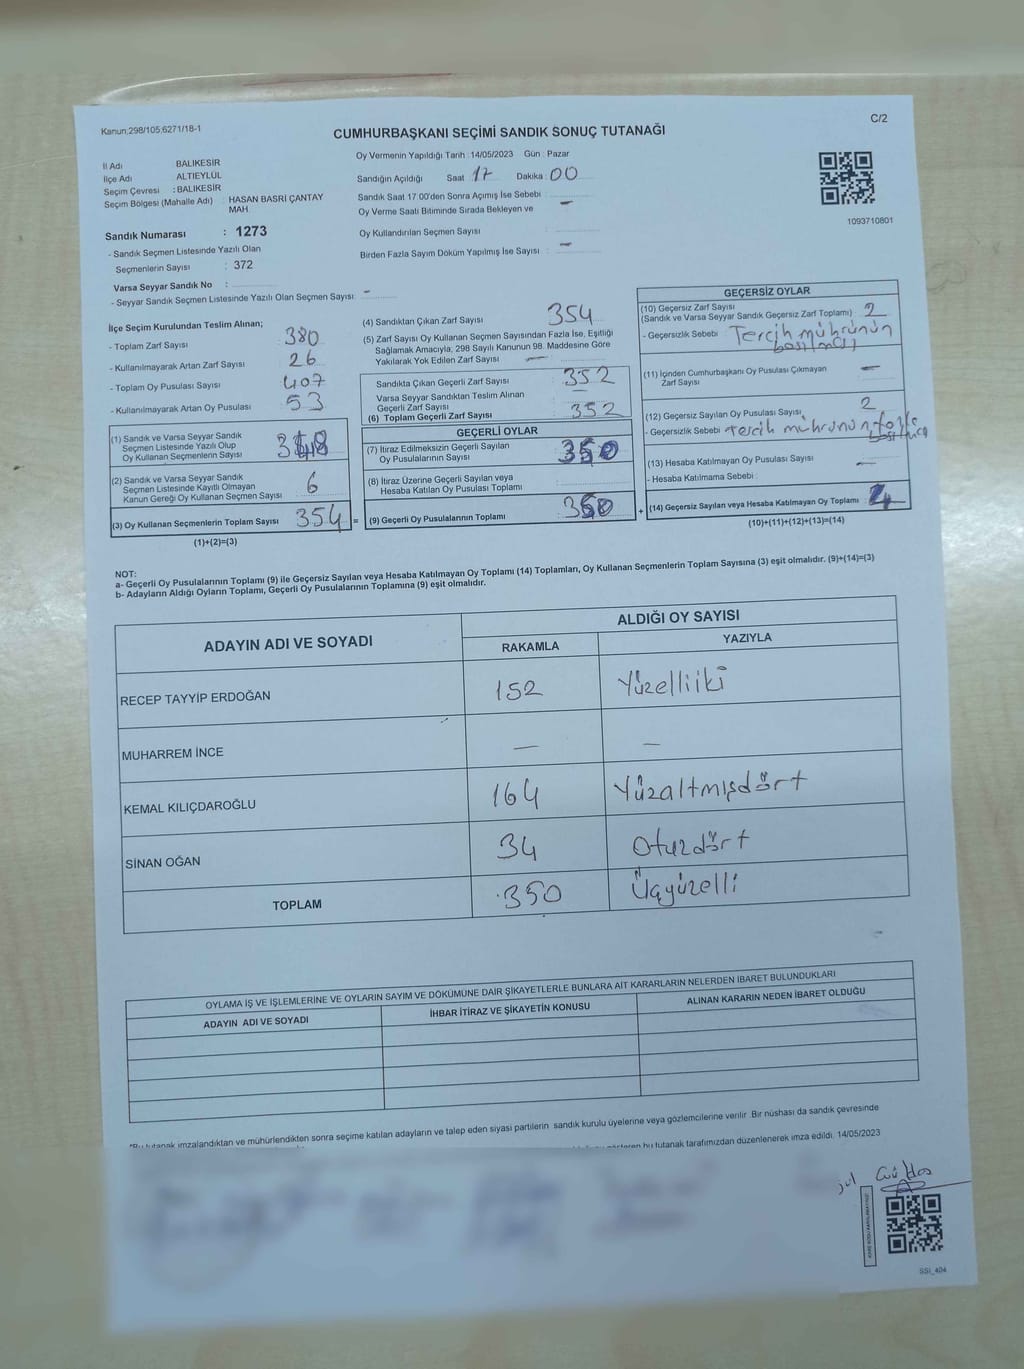 Kanun;298/105;6271/18-1
C/2
CUMHURBAŞKANI SEÇİMİ SANDIK SONUÇ TUTANAĞI
İl Adı BALIKESİR
İlçe Adı ALTIEYLÜL
Seçim Çevresi : BALIKESİR
Seçim Bölgesi (Mahalle Adı) : HASAN BASRİ ÇANTAY MAH
Sandık Numarası : 1273
- Sandık Seçmen Listesinde Yazılı Olan
Seçmenlerin Sayısı : 372
Varsa Seyyar Sandık No :
- Seyyar Sandık Seçmen Listesinde Yazılı Olan Seçmen Sayısı: -
Oy Vermenin Yapıldığı Tarih : 14/05/2023 Gün : Pazar
Sandığın Açıldığı Saat 17 Dakika : 00
Sandık Saat 17 00'den Sonra Açımış İse Sebebi
Oy Verme Saati Bitiminde Sırada Bekleyen ve -
Oy Kullandırılan Seçmen Sayısı :
Birden Fazla Sayım Döküm Yapılmış İse Sayısı : -
1093710801
İlçe Seçim Kurulundan Teslim Alınan;
- Toplam Zarf Sayısı 380
- Kullanılmayarak Artan Zarf Sayısı 26
- Toplam Oy Pusulası Sayısı 407
- Kullanılmayarak Artan Oy Pusulası 53
(1) Sandık ve Varsa Seyyar Sandık
Seçmen Listesinde Yazılı Olup
Oy Kullanan Seçmenlerin Sayısı 348
(2) Sandık ve Varsa Seyyar Sandık
Seçmen Listesinde Kayıtlı Olmayan
Kanun Gereği Oy Kullanan Seçmen Sayısı 6
(3) Oy Kullanan Seçmenlerin Toplam Sayısı 354
(1)+(2)=(3)
(4) Sandıktan Çıkan Zarf Sayısı 354
(5) Zarf Sayısı Oy Kullanan Seçmen Sayısından Fazla İse, Eşitliği
Sağlamak Amacıyla, 298 Sayılı Kanunun 98. Maddesine Göre
Yakılarak Yok Edilen Zarf Sayısı -
Sandıkta Çıkan Geçerli Zarf Sayısı 352
Varsa Seyyar Sandıktan Teslim Alınan
Geçerli Zarf Sayısı -
(6) Toplam Geçerli Zarf Sayısı 352
GEÇERLİ OYLAR
(7) İtiraz Edilmeksizin Geçerli Sayılan
Oy Pusulasının Sayısı 350
(8) İtiraz Üzerine Geçerli Sayılan veya
Hesaba Katılan Oy Pusulası Toplamı
= (9) Geçerli Oy Pusulalarının Toplamı 350 +
GEÇERSİZ OYLAR
(10) Geçersiz Zarf Sayısı
(Sandık ve Varsa Seyyar Sandık Geçersiz Zarf Toplamı) 2
- Geçersizlik Sebebi : Tercih mührünün
basılması
(11) İçinden Cumhurbaşkanı Oy Pusulası Çıkmayan
Zarf Sayısı -
(12) Geçersiz Sayılan Oy Pusulası Sayısı 2
- Geçersizlik Sebebi Tercih mührünün fazla
(13) Hesaba Katılmayan Oy Pusulası Sayısı -
- Hesaba Katılmama Sebebi :
(14) Geçersiz Sayılan veya Hesaba Katılmayan Oy Toplamı 4
(10)+(11)+(12)+(13)=(14)
NOT:
a- Geçerli Oy Pusulalarının Toplamı (9) ile Geçersiz Sayılan veya Hesaba Katılmayan Oy Toplamı (14) Toplamları, Oy Kullanan Seçmenlerin Toplam Sayısına (3) eşit olmalıdır. (9)+(14)=(3)
b- Adayların Aldığı Oyların Toplamı, Geçerli Oy Pusulalarının Toplamına (9) eşit olmalıdır.
ADAYIN ADI VE SOYADI
ALDIĞI OY SAYISI
RAKAMLA YAZIYLA
RECEP TAYYİP ERDOĞAN 152 Yüzelliiki
MUHARREM İNCE - -
KEMAL KILIÇDAROĞLU 164 Yüzaltmışdört
SİNAN OĞAN 34 Otuzdört
TOPLAM 350 Üçyüzelli
OYLAMA İŞ VE İŞLEMLERİNE VE OYLARIN SAYIM VE DÖKÜMÜNE DAİR ŞİKAYETLERLE BUNLARA AİT KARARLARIN NELERDEN İBARET BULUNDUKLARI
ADAYIN ADI VE SOYADI İHBAR İTİRAZ VE ŞİKAYETİN KONUSU ALINAN KARARIN NEDEN İBARET OLDUĞU
*Bu tutanak imzalandıktan ve mühürlendikten sonra seçime katılan adayların ve talep eden siyasi partilerin sandık kurulu üyelerine veya gözlemcilerine verilir. Bir nüshası da sandık çevresinde
gösteren bu tutanak tarafımızdan düzenlenerek imza edildi. 14/05/2023
SSI_404